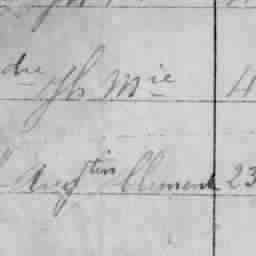 du Jh Mie 4
Augtin Clement 23